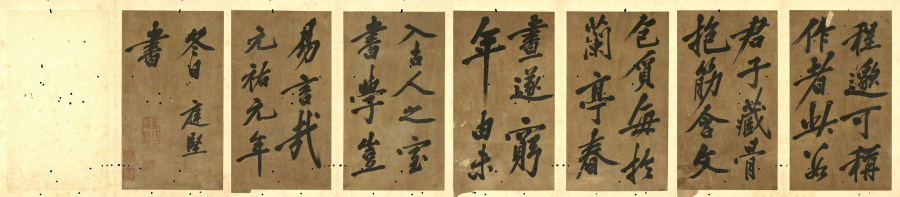 程邈可稱
作者此若
君子藏骨
抱筋含文
包質每於
蘭亭春
畫遂窮
年由未
入古人之室
書學豈
易言哉
元祐元年
冬日庭堅
書